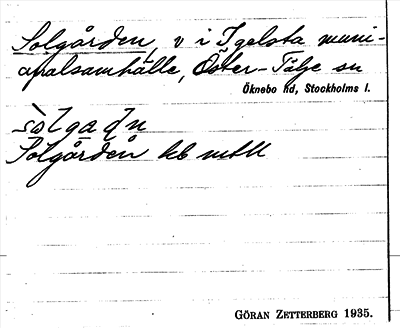 Solgården, v i Igelsta muni-
cipalsamhälle, Öster-Tälje sn
Öknebo hd, Stockholms l.
Solgården kb mtbl
GÖRAN ZETTERBERG 1935.